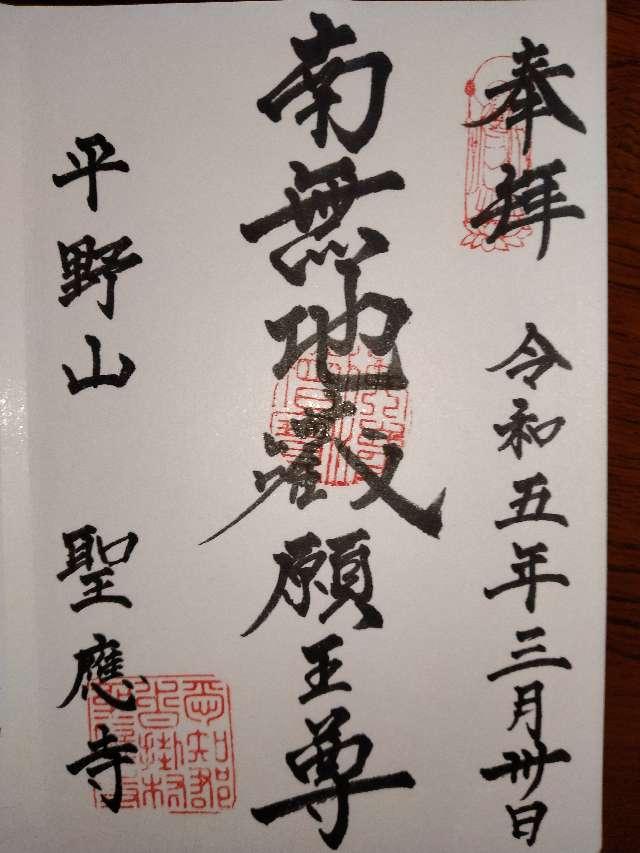 奉拝
令和五年三月卅日
南無地蔵願王尊
平野山 聖應寺